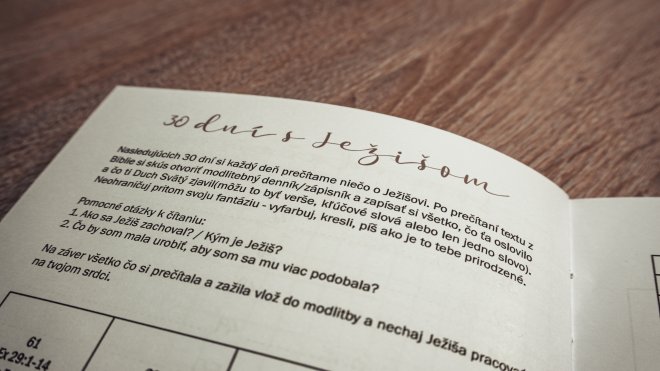 30 dní s Ježišom
Nasledujúcich 30 dní si každý deň prečítame niečo o Ježišovi. Po prečítaní textu z
Biblie si skús otvoriť modlitebný denník/zápisník a zapísať si všetko, čo ťa oslovilo
a čo ti Duch Svätý zjavil(môžu to byť verše, kľúčové slová alebo len jedno slovo).
Neohraničuj pritom svoju fantáziu - vyfarbuj, kresli, píš ako je to tebe prirodzené.
Pomocné otázky k čítaniu:
1. Ako sa Ježiš zachoval? / Kým je Ježiš?
2. Čo by som mala urobiť, aby som sa mu viac podobala?
Na záver všetko čo si prečítala a zažila vlož do modlitby a nechaj Ježiša pracovať
na tvojom srdci.
61
Ex 29:1-14